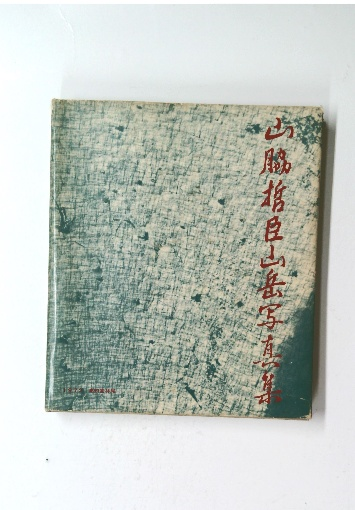 山脇哲臣山岳写真集